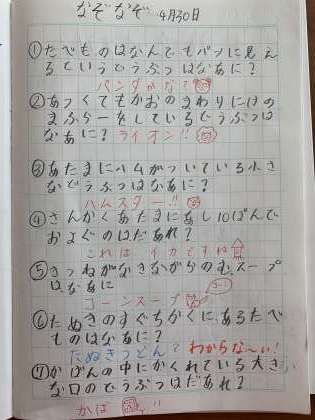 なぞなぞ 4月30日
①たべものはなんでもパンに見え
るというどうぶつはなあに？
パンダかな？
②あつくてもかおのまわりにけの
まふらーをしているどうぶつは
なあに？ライオン!!
③あたまにハムがついている小さ
などうぶつはなあに？
ハムスター!!
④さんかくあたまにあし10ぽんで
およぐのはだあれ？
これは イカですね
⑤きつねがなきながらのむスープ
はなあに
コーンスープ
⑥たぬきのすぐちかくに、あるたべ
ものはなあに？
たぬきうどん？わからな〜い!
⑦かばんの中にかくれている大き
な口のどうぶつはだあれ？
かば !!